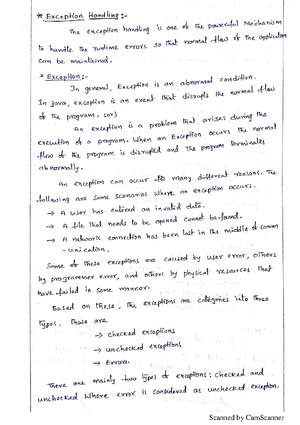 * Exception Handling :-
The exception handling is one of the powerful Mechanism
to handle the runtime errors so that normal flow of the application
can be maintained.
* Exception :-
In general, Exception is an abnormal condition.
In java, exception is an event that disrupts the normal flow
of the program. (or)
An exception is a problem that arises during the
execution of a program. When an Exception occurs the normal
flow of the program is disrupted and the program terminates
abnormally.
An exception can occur for many different reasons. The
following are some scenarios where an exception occurs.
→ A user has entered an invalid data.
→ A file that needs to be opened cannot be found.
→ A network connection has been lost in the middle of comm
- unication.
Some of these exceptions are caused by user error, others
by programmer error, and others by physical resources that
have failed in some manner.
Based on these, the exceptions are categories into three
types. Those are
→ checked exceptions
→ unchecked exceptions
→ Errors.
There are mainly two types of exceptions: checked and
unchecked where error is considered as unchecked exception.
Scanned by CamScanner